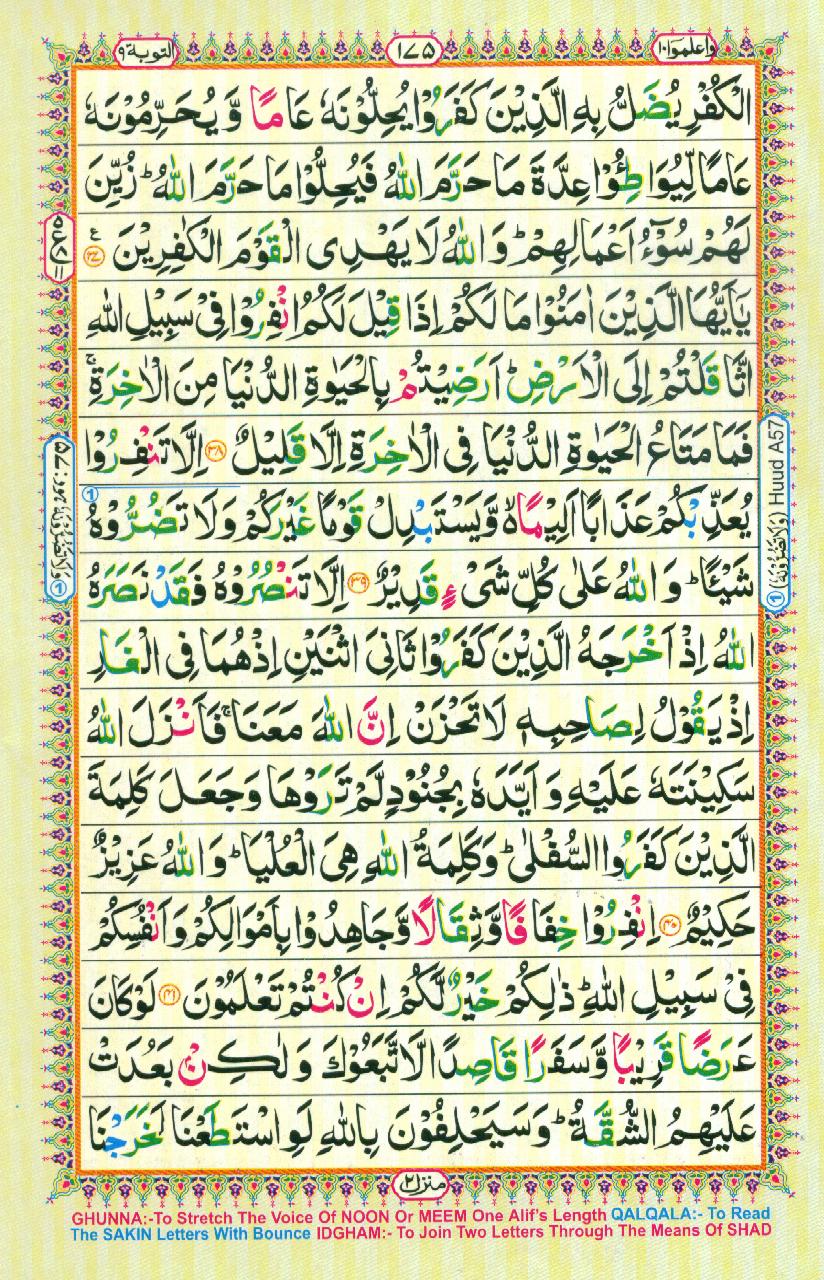 واعلموا١٠
١٧٥
التوبة ٩
الْكُفْرِ يُضَلُّ بِهِ الَّذِيْنَ كَفَرُوْا يُحِلُّوْنَهٗ عَامًا وَّ يُحَرِّمُوْنَهٗ
عَامًا لِّيُوَاطِـُٔوْا عِدَّةَ مَا حَرَّمَ اللّٰهُ فَيُحِلُّوْا مَا حَرَّمَ اللّٰهُ ؕ زُيِّنَ
لَهُمْ سُوْٓءُ اَعْمَالِهِمْ ؕ وَ اللّٰهُ لَا يَهْدِى الْقَوْمَ الْكٰفِرِيْنَ ع ٣٧
يٰۤاَيُّهَا الَّذِيْنَ اٰمَنُوْا مَا لَكُمْ اِذَا قِيْلَ لَكُمُ انْفِرُوْا فِىْ سَبِيْلِ اللّٰهِ
اثَّاقَلْتُمْ اِلَى الْاَرْضِ ؕ اَرَضِيْتُمْ بِالْحَيٰوةِ الدُّنْيَا مِنَ الْاٰخِرَةِ ۚ
فَمَا مَتَاعُ الْحَيٰوةِ الدُّنْيَا فِى الْاٰخِرَةِ اِلَّا قَلِيْلٌ ٣٨ اِلَّا تَنْفِرُوْا
يُعَذِّبْكُمْ عَذَابًا اَلِيْمًا ۙ۬ وَّ يَسْتَبْدِلْ قَوْمًا غَيْرَكُمْ وَلَا تَضُرُّوْهُ
شَيْـًٔا ؕ وَ اللّٰهُ عَلٰى كُلِّ شَىْءٍ قَدِيْرٌ ٣٩ اِلَّا تَنْصُرُوْهُ فَقَدْ نَصَرَهُ
اللّٰهُ اِذْ اَخْرَجَهُ الَّذِيْنَ كَفَرُوْا ثَانِىَ اثْنَيْنِ اِذْ هُمَا فِى الْغَارِ
اِذْ يَقُوْلُ لِصَاحِبِهٖ لَا تَحْزَنْ اِنَّ اللّٰهَ مَعَنَا ۚ فَاَنْزَلَ اللّٰهُ
سَكِيْنَتَهٗ عَلَيْهِ وَ اَيَّدَهٗ بِجُنُوْدٍ لَّمْ تَرَوْهَا وَجَعَلَ كَلِمَةَ
الَّذِيْنَ كَفَرُوا السُّفْلٰى ؕ وَكَلِمَةُ اللّٰهِ هِىَ الْعُلْيَا ؕ وَ اللّٰهُ عَزِيْزٌ
حَكِيْمٌ ٤٠ اِنْفِرُوْا خِفَافًا وَّثِقَالًا وَّجَاهِدُوْا بِاَمْوَالِكُمْ وَاَنْفُسِكُمْ
فِىْ سَبِيْلِ اللّٰهِ ؕ ذٰلِكُمْ خَيْرٌ لَّكُمْ اِنْ كُنْتُمْ تَعْلَمُوْنَ ٤١ لَوْ كَانَ
عَرَضًا قَرِيْبًا وَّسَفَرًا قَاصِدًا لَّاتَّبَعُوْكَ وَلٰكِنْۢ بَعُدَتْ
عَلَيْهِمُ الشُّقَّةُ ؕ وَسَيَحْلِفُوْنَ بِاللّٰهِ لَوِ اسْتَطَعْنَا لَخَرَجْنَا
منزل ٢
1 (وَلَا تَضُرُّوْنَهٗ) Huud A57
GHUNNA:-To Stretch The Voice Of NOON Or MEEM One Alif's Length QALQALA:- To Read
The SAKIN Letters With Bounce IDGHAM:- To Join Two Letters Through The Means Of SHAD